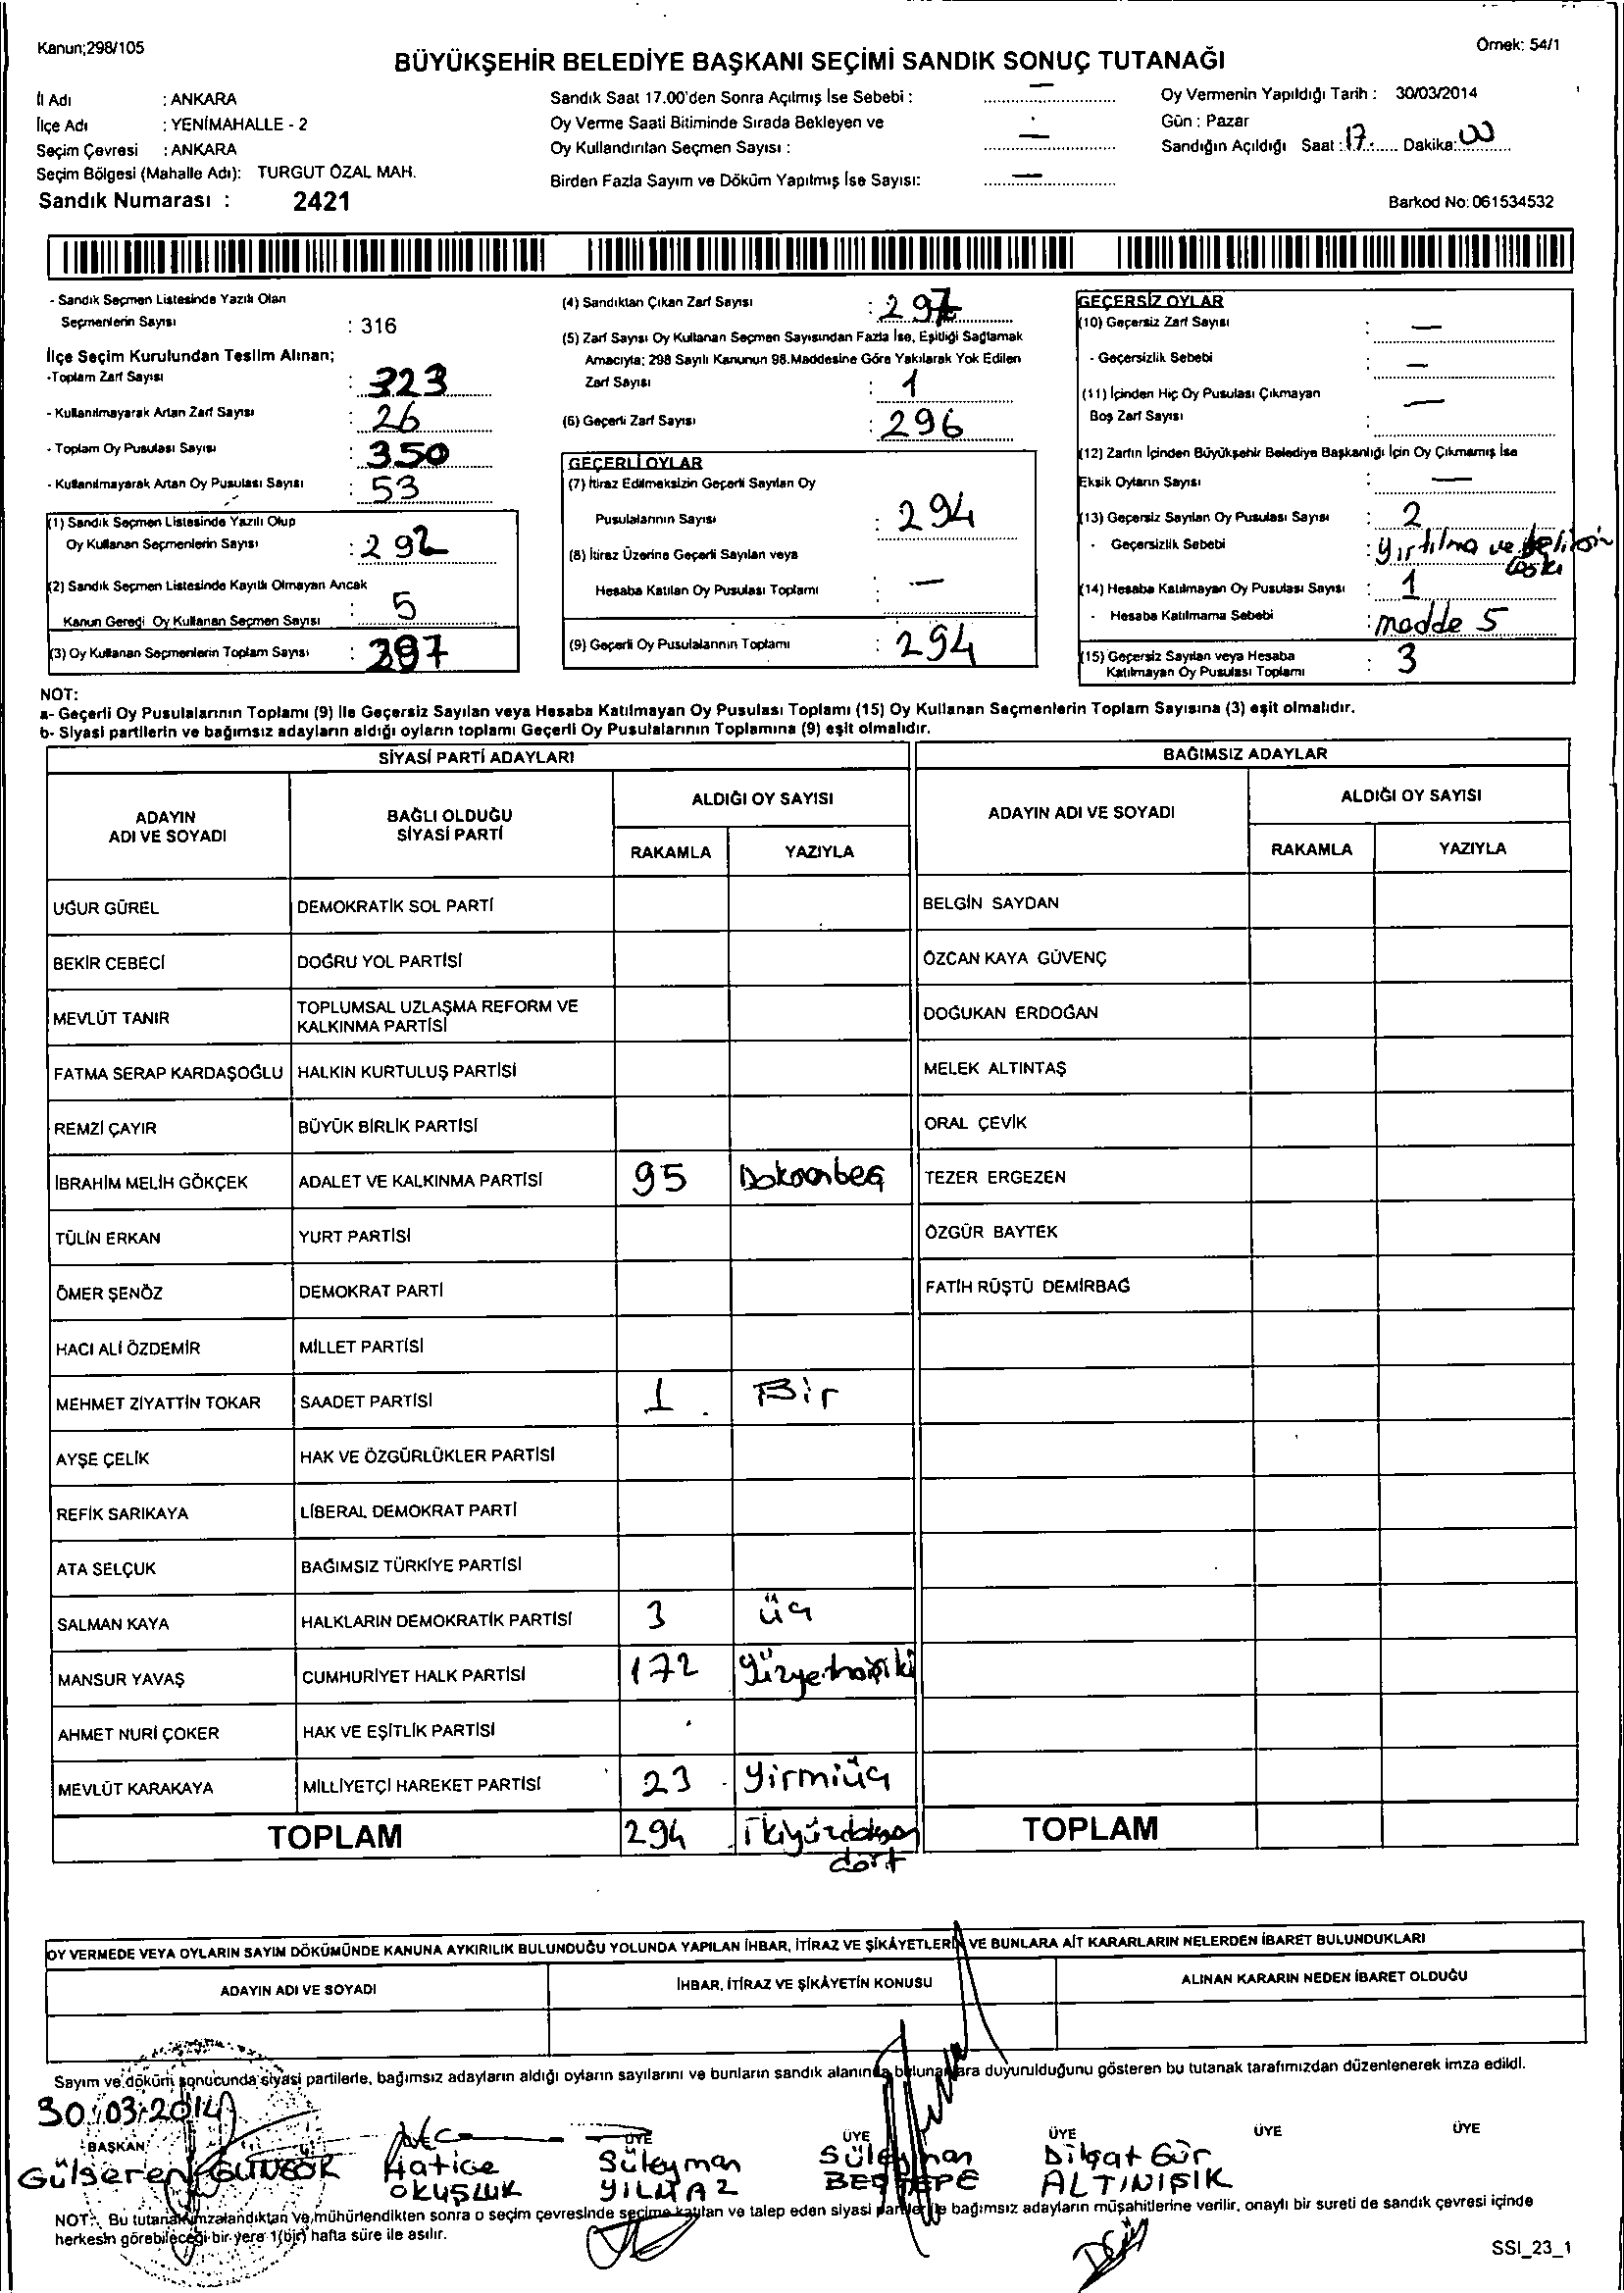 Kanun;298/105
Örnek: 54/1
BÜYÜKŞEHİR BELEDİYE BAŞKANI SEÇİMİ SANDIK SONUÇ TUTANAĞI
İl Adı : ANKARA
İlçe Adı : YENİMAHALLE - 2
Seçim Çevresi : ANKARA
Seçim Bölgesi (Mahalle Adı): TURGUT ÖZAL MAH.
Sandık Numarası : 2421
Sandık Saat 17.00'den Sonra Açılmış İse Sebebi : —
Oy Verme Saati Bitiminde Sırada Bekleyen ve
Oy Kullandırılan Seçmen Sayısı : —
Birden Fazla Sayım ve Döküm Yapılmış İse Sayısı: —
Oy Vermenin Yapıldığı Tarih : 30/03/2014
Gün : Pazar
Sandığın Açıldığı Saat : 17 Dakika: 00
Barkod No: 061534532
- Sandık Seçmen Listesinde Yazılı Olan
Seçmenlerin Sayısı : 316
İlçe Seçim Kurulundan Teslim Alınan;
-Toplam Zarf Sayısı : 323
- Kullanılmayarak Artan Zarf Sayısı : 26
- Toplam Oy Pusulası Sayısı : 350
- Kullanılmayarak Artan Oy Pusulası Sayısı : 53
(1) Sandık Seçmen Listesinde Yazılı Olup
Oy Kullanan Seçmenlerin Sayısı : 292
(2) Sandık Seçmen Listesinde Kayıtlı Olmayan Ancak
Kanun Gereği Oy Kullanan Seçmen Sayısı : 5
(3) Oy Kullanan Seçmenlerin Toplam Sayısı : 297
(4) Sandıktan Çıkan Zarf Sayısı : 297
(5) Zarf Sayısı Oy Kullanan Seçmen Sayısından Fazla İse, Eşitliği Sağlamak
Amacıyla; 298 Sayılı Kanunun 98.Maddesine Göre Yakılarak Yok Edilen
Zarf Sayısı : 1
(6) Geçerli Zarf Sayısı : 296
GEÇERLİ OYLAR
(7) İtiraz Edilmeksizin Geçerli Sayılan Oy
Pusulalarının Sayısı : 294
(8) İtiraz Üzerine Geçerli Sayılan veya
Hesaba Katılan Oy Pusulası Toplamı : —
(9) Geçerli Oy Pusulalarının Toplamı : 294
GEÇERSİZ OYLAR
(10) Geçersiz Zarf Sayısı : —
- Geçersizlik Sebebi : —
(11) İçinden Hiç Oy Pusulası Çıkmayan
Boş Zarf Sayısı : —
(12) Zarfın İçinden Büyükşehir Belediye Başkanlığı İçin Oy Çıkmamış İse
Eksik Oyların Sayısı : —
(13) Geçersiz Sayılan Oy Pusulası Sayısı : 2
- Geçersizlik Sebebi : yırtılma ve
(14) Hesaba Katılmayan Oy Pusulası Sayısı : 1
- Hesaba Katılmama Sebebi : madde 5
(15) Geçersiz Sayılan veya Hesaba
Katılmayan Oy Pusulası Toplamı : 3
NOT:
a- Geçerli Oy Pusulalarının Toplamı (9) ile Geçersiz Sayılan veya Hesaba Katılmayan Oy Pusulası Toplamı (15) Oy Kullanan Seçmenlerin Toplam Sayısına (3) eşit olmalıdır.
b- Siyasi partilerin ve bağımsız adayların aldığı oyların toplamı Geçerli Oy Pusulalarının Toplamına (9) eşit olmalıdır.
SİYASİ PARTİ ADAYLARI
BAĞIMSIZ ADAYLAR
ADAYIN
ADI VE SOYADI
BAĞLI OLDUĞU
SİYASİ PARTİ
ALDIĞI OY SAYISI
RAKAMLA YAZIYLA
ADAYIN ADI VE SOYADI
ALDIĞI OY SAYISI
RAKAMLA YAZIYLA
UĞUR GÜREL DEMOKRATİK SOL PARTİ BELGİN SAYDAN
BEKİR CEBECİ DOĞRU YOL PARTİSİ ÖZCAN KAYA GÜVENÇ
MEVLÜT TANIR TOPLUMSAL UZLAŞMA REFORM VE
KALKINMA PARTİSİ DOĞUKAN ERDOĞAN
FATMA SERAP KARDAŞOĞLU HALKIN KURTULUŞ PARTİSİ MELEK ALTINTAŞ
REMZİ ÇAYIR BÜYÜK BİRLİK PARTİSİ ORAL ÇEVİK
İBRAHİM MELİH GÖKÇEK ADALET VE KALKINMA PARTİSİ 95 Doksanbeş TEZER ERGEZEN
TÜLİN ERKAN YURT PARTİSİ ÖZGÜR BAYTEK
ÖMER ŞENÖZ DEMOKRAT PARTİ FATİH RÜŞTÜ DEMİRBAĞ
HACI ALİ ÖZDEMİR MİLLET PARTİSİ
MEHMET ZİYATTİN TOKAR SAADET PARTİSİ 1 Bir
AYŞE ÇELİK HAK VE ÖZGÜRLÜKLER PARTİSİ
REFİK SARIKAYA LİBERAL DEMOKRAT PARTİ
ATA SELÇUK BAĞIMSIZ TÜRKİYE PARTİSİ
SALMAN KAYA HALKLARIN DEMOKRATİK PARTİSİ 3 üç
MANSUR YAVAŞ CUMHURİYET HALK PARTİSİ 172 Yüzyetmişiki
AHMET NURİ ÇOKER HAK VE EŞİTLİK PARTİSİ
MEVLÜT KARAKAYA MİLLİYETÇİ HAREKET PARTİSİ 23 Yirmiüç
TOPLAM 294 İkiyüzdoksan
dört
TOPLAM
OY VERMEDE VEYA OYLARIN SAYIM DÖKÜMÜNDE KANUNA AYKIRILIK BULUNDUĞU YOLUNDA YAPILAN İHBAR, İTİRAZ VE ŞİKÂYETLERİN VE BUNLARA AİT KARARLARIN NELERDEN İBARET BULUNDUKLARI
ADAYIN ADI VE SOYADI İHBAR, İTİRAZ VE ŞİKÂYETİN KONUSU ALINAN KARARIN NEDEN İBARET OLDUĞU
Sayım ve döküm sonucunda siyasi partilerle, bağımsız adayların aldığı oyların sayılarını ve bunların sandık alanında bulunanlara duyurulduğunu gösteren bu tutanak tarafımızdan düzenlenerek imza edildi.
30/03/2014
BAŞKAN ÜYE ÜYE ÜYE ÜYE ÜYE
Gülseren GÜNGÖR
Hatice
OKUŞLUK
Süleyman
YILMAZ
Süleyman
BEŞTEPE
Dilşat Gür
ALTINIŞIK
NOT: Bu tutanak imzalandıktan ve mühürlendikten sonra o seçim çevresinde seçime katılan ve talep eden siyasi partiler ile bağımsız adayların müşahitlerine verilir, onaylı bir sureti de sandık çevresi içinde
herkesin görebileceği bir yere 1(bir) hafta süre ile asılır.
SSI_23_1